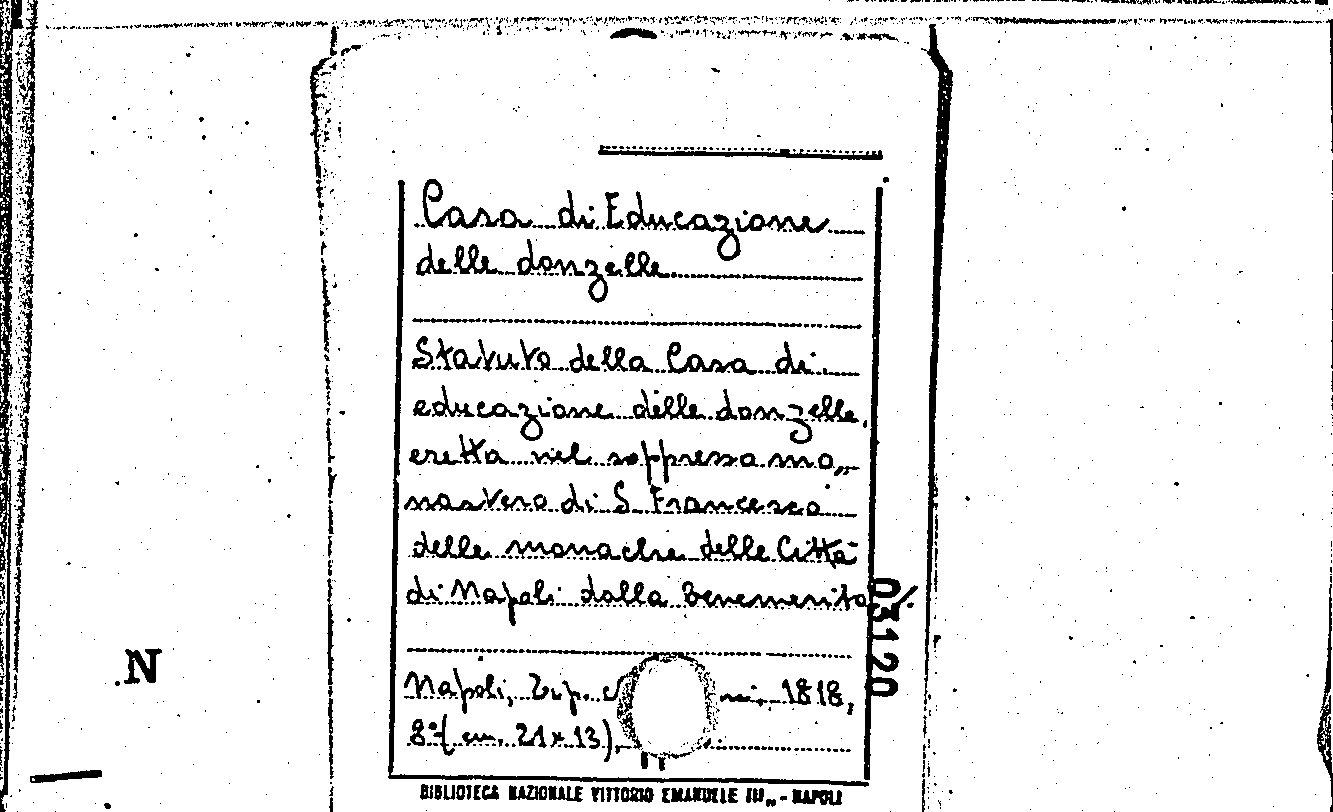 Casa di Educazione
delle donzelle
Statuto della Casa di
educazione delle donzelle,
eretta nel soppresso mo„
nastero di S. Francesco
delle monache delle Città
di Napoli dalla benemerita
03120
N
Napoli, Tip. 1818,
8° (cm. 21 x 13),
BIBLIOTECA NAZIONALE VITTORIO EMANUELE III„ - NAPOLI